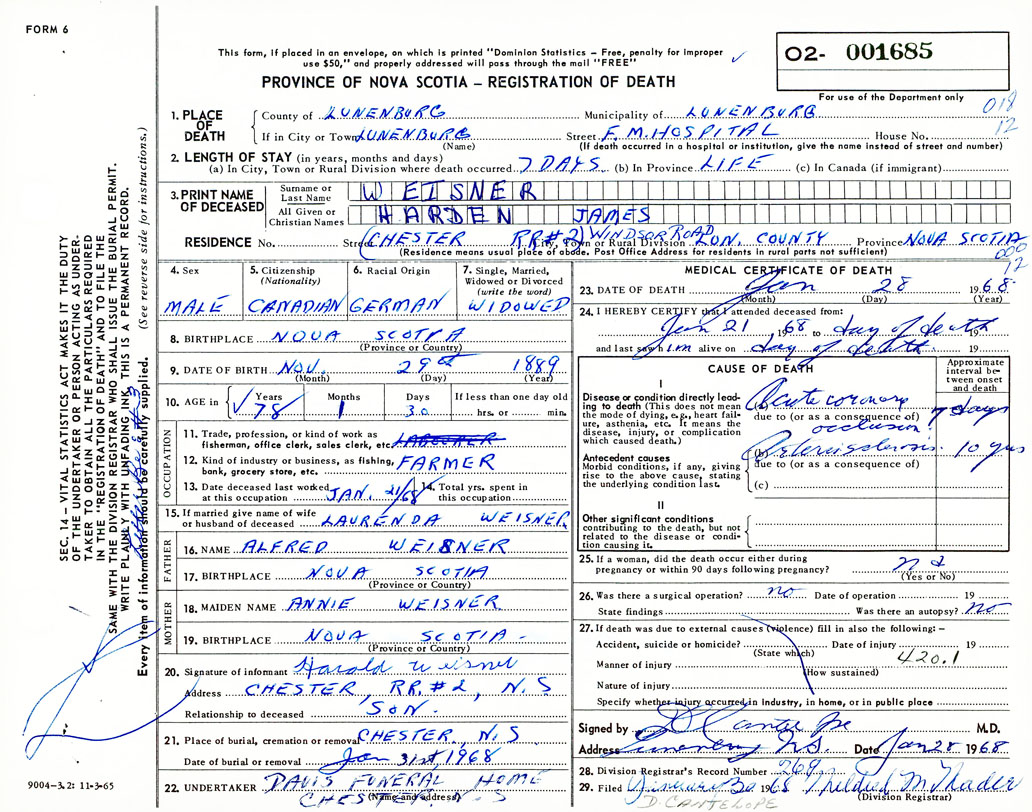 FORM 6
This form, if placed in an envelope, on which is printed "Dominion Statistics – Free, penalty for improper
use $50," and properly addressed will pass through the mail "FREE"
O2- 001685
PROVINCE OF NOVA SCOTIA – REGISTRATION OF DEATH
For use of the Department only
018
12
1. PLACE OF DEATH
County of LUNENBURG Municipality of LUNENBURG
If in City or Town LUNENBURG Street F. M. HOSPITAL House No.
(Name) (If death occurred in a hospital or institution, give the name instead of street and number)
2. LENGTH OF STAY (in years, months and days)
(a) In City, Town or Rural Division where death occurred 7 DAYS (b) In Province LIFE (c) In Canada (if immigrant)
3. PRINT NAME OF DECEASED
Surname or Last Name WEISNER
All Given or Christian Names HARDEN JAMES
RESIDENCE No. Street (CHESTER RR#2) WINDSOR ROAD City, Town or Rural Division LUN. COUNTY Province NOVA SCOTIA
(Residence means usual place of abode. Post Office Address for residents in rural parts not sufficient)
000
12
4. Sex MALE
5. Citizenship (Nationality) CANADIAN
6. Racial Origin GERMAN
7. Single, Married, Widowed or Divorced (write the word) WIDOWED
8. BIRTHPLACE NOVA SCOTIA
(Province or Country)
9. DATE OF BIRTH NOV. 29th 1889
(Month) (Day) (Year)
10. AGE in Years 78 Months 1 Days 30 If less than one day old hrs. or min.
OCCUPATION
11. Trade, profession, or kind of work as fisherman, office clerk, sales clerk, etc. LABOURER
12. Kind of industry or business, as fishing, bank, grocery store, etc. FARMER
13. Date deceased last worked at this occupation JAN. 21/68 14. Total yrs. spent in this occupation
15. If married give name of wife or husband of deceased LAURENDA WEISNER
FATHER
16. NAME ALFRED WEISNER
17. BIRTHPLACE NOVA SCOTIA
(Province or Country)
MOTHER
18. MAIDEN NAME ANNIE WEISNER
19. BIRTHPLACE NOVA SCOTIA -
(Province or Country)
20. Signature of informant Harold Weisner
Address CHESTER, RR. #2, N.S
Relationship to deceased SON.
21. Place of burial, cremation or removal CHESTER, N.S
Date of burial or removal Jan 31st, 1968
22. UNDERTAKER DAVIS FUNERAL HOME
CHESTER N.S
(Name and address)
MEDICAL CERTIFICATE OF DEATH
23. DATE OF DEATH Jan 28 1968
(Month) (Day) (Year)
24. I HEREBY CERTIFY that I attended deceased from:
Jan 21 1968 to day of death 19
and last saw him alive on day of death 19
CAUSE OF DEATH
Approximate interval between onset and death
I
Disease or condition directly leading to death (This does not mean the mode of dying, e.g., heart failure, asthenia, etc. It means the disease, injury, or complication which caused death.)
(a) Acute coronary occlusion 7 days
due to (or as a consequence of)
Antecedent causes
Morbid conditions, if any, giving rise to the above cause, stating the underlying condition last.
(b) Arteriosclerosis 10 yrs
due to (or as a consequence of)
(c)
II
Other significant conditions
contributing to the death, but not related to the disease or condition causing it.
25. If a woman, did the death occur either during pregnancy or within 90 days following pregnancy?
(Yes or No)
26. Was there a surgical operation? no Date of operation 19
State findings Was there an autopsy? no
27. If death was due to external causes (violence) fill in also the following: –
Accident, suicide or homicide? Date of injury 19
(State which) 420.1
Manner of injury
(How sustained)
Nature of injury
Specify whether injury occurred in industry, in home, or in public place
Signed by M.D.
Address Lunenburg N.S. Date Jan 28 1968
28. Division Registrar's Record Number 269
29. Filed January 30 1968 Mildred M Mader
(Division Registrar)
D. CANTELOPE
SEC. 14 – VITAL STATISTICS ACT MAKES IT THE DUTY
OF THE UNDERTAKER OR PERSON ACTING AS UNDER-
TAKER TO OBTAIN ALL THE PARTICULARS REQUIRED
IN THE "REGISTRATION OF DEATH" AND TO FILE THE
SAME WITH THE DIVISION REGISTRAR WHO SHALL ISSUE THE BURIAL PERMIT.
WRITE PLAINLY WITH UNFADING INK, THIS IS A PERMANENT RECORD.
Every item of information should be carefully supplied. (See reverse side for instructions.)
9004-3.2: 11-3-65